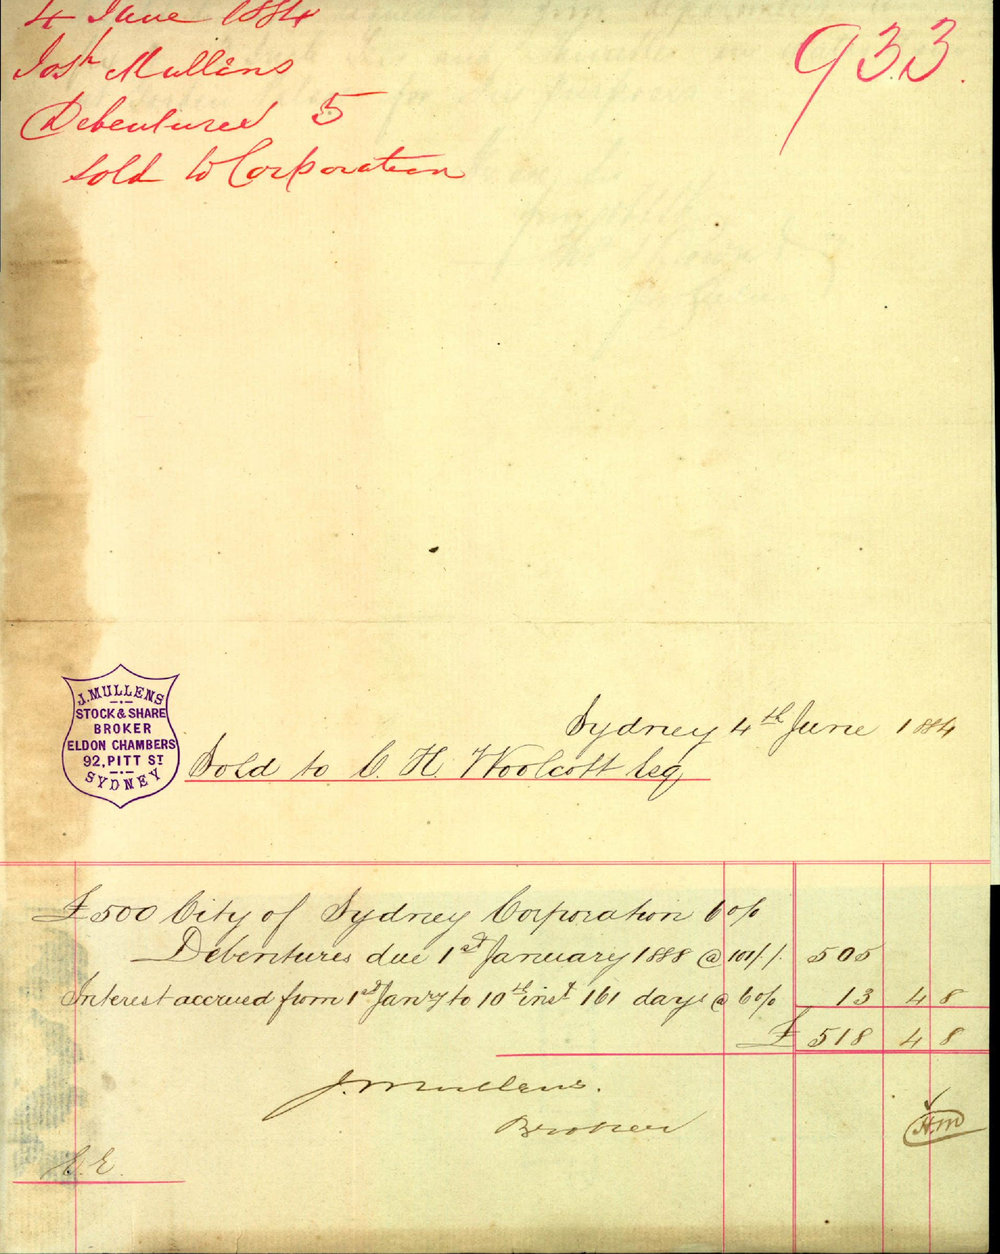 4 June 1884
933
Josh Mullens
Debentures 5
sold to Corporation
J. MULLENS
STOCK & SHARE
BROKER
ELDON CHAMBERS
92, PITT ST
SYDNEY
Sydney 4th June 1884
Sold to C. H. Woolcott Esq
£500 City of Sydney Corporation 6 o/o
Debentures due 1st January 1888 @ 101/./. 505
Interest accrued from 1st Jany to 10th inst 161 days @ 6 o/o 13 4 8
£ 518 4 8
J. Mullens.
Broker
H.M
E. E.